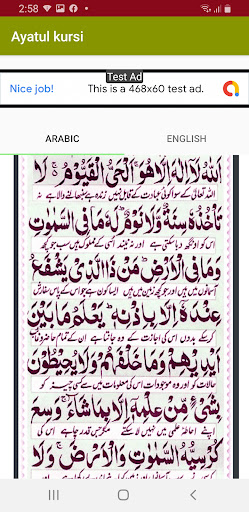 2:58
91%
Ayatul kursi
Test Ad
Nice job!
This is a 468x60 test ad.
ARABIC
ENGLISH
اَللّٰهُ لَاۤ اِلٰهَ اِلَّا هُوَ ۚ اَلْحَیُّ الْقَیُّوْمُ ۚ لَا
اللہ تعالیٰ کے سوا کوئی عبادت کے قابل نہیں زندہ ہے سنبھالنے والا ہے نہ
تَاْخُذُهٗ سِنَةٌ وَّلَا نَوْمٌ ؕ لَهٗ مَا فِی السَّمٰوٰتِ
اس کو اونگھ دبا سکتی ہے اور نہ نیند اسی کے مملوک ہیں سب جو کچھ
وَمَا فِی الْاَرْضِ ؕ مَنْ ذَا الَّذِیْ یَشْفَعُ
آسمانوں میں ہیں اور جو کچھ زمین میں ہیں ایسا کون ہے جو اس کے پاس سفارش
عِنْدَهٗۤ اِلَّا بِاِذْنِهٖ ؕ یَعْلَمُ مَا بَیْنَ
کر سکے بدوں اس کی اجازت کے وہ جانتا ہے ان کے تمام حاضر و غائب
اَیْدِیْهِمْ وَمَا خَلْفَهُمْ ۚ وَلَا یُحِیْطُوْنَ
حالات کو اور وہ موجودات اس کے معلومات میں سے کسی چیز کو
بِشَیْءٍ مِّنْ عِلْمِهٖۤ اِلَّا بِمَا شَآءَ ۚ وَسِعَ
اپنے احاطہ علمی میں نہیں لا سکتے مگر جس قدر چاہے اس کی
كُرْسِیُّهُ السَّمٰوٰتِ وَالْاَرْضَ ۚ وَلَا